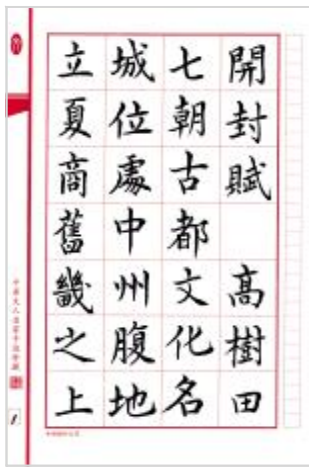 開封賦 高樹田
七朝古都文化名
城位處中州腹地
立夏商舊畿之上